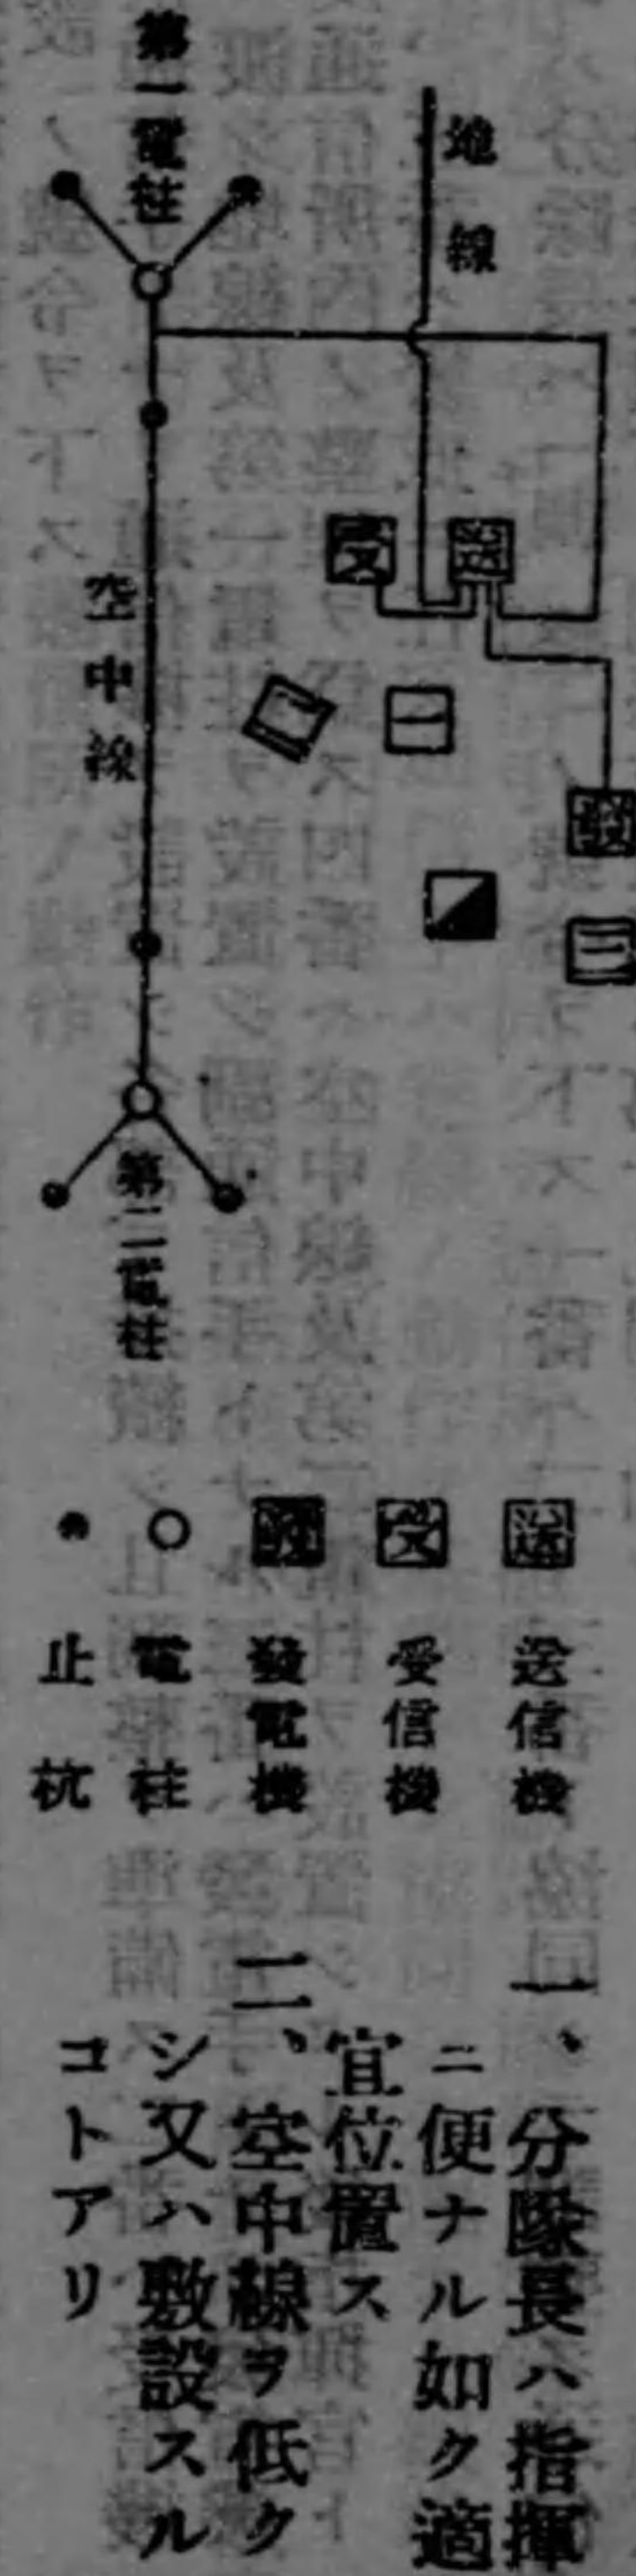 第一電柱
地線
空中線
受
送
二
一
發
三
第二電柱
送 送信機
受 受信機
發 發電機
電柱
止杭
一、分隊長ハ指揮
ニ便ナル如ク適
宜位置ス
二、空中線ヲ低ク
シ又ハ敷設スル
コトアリ